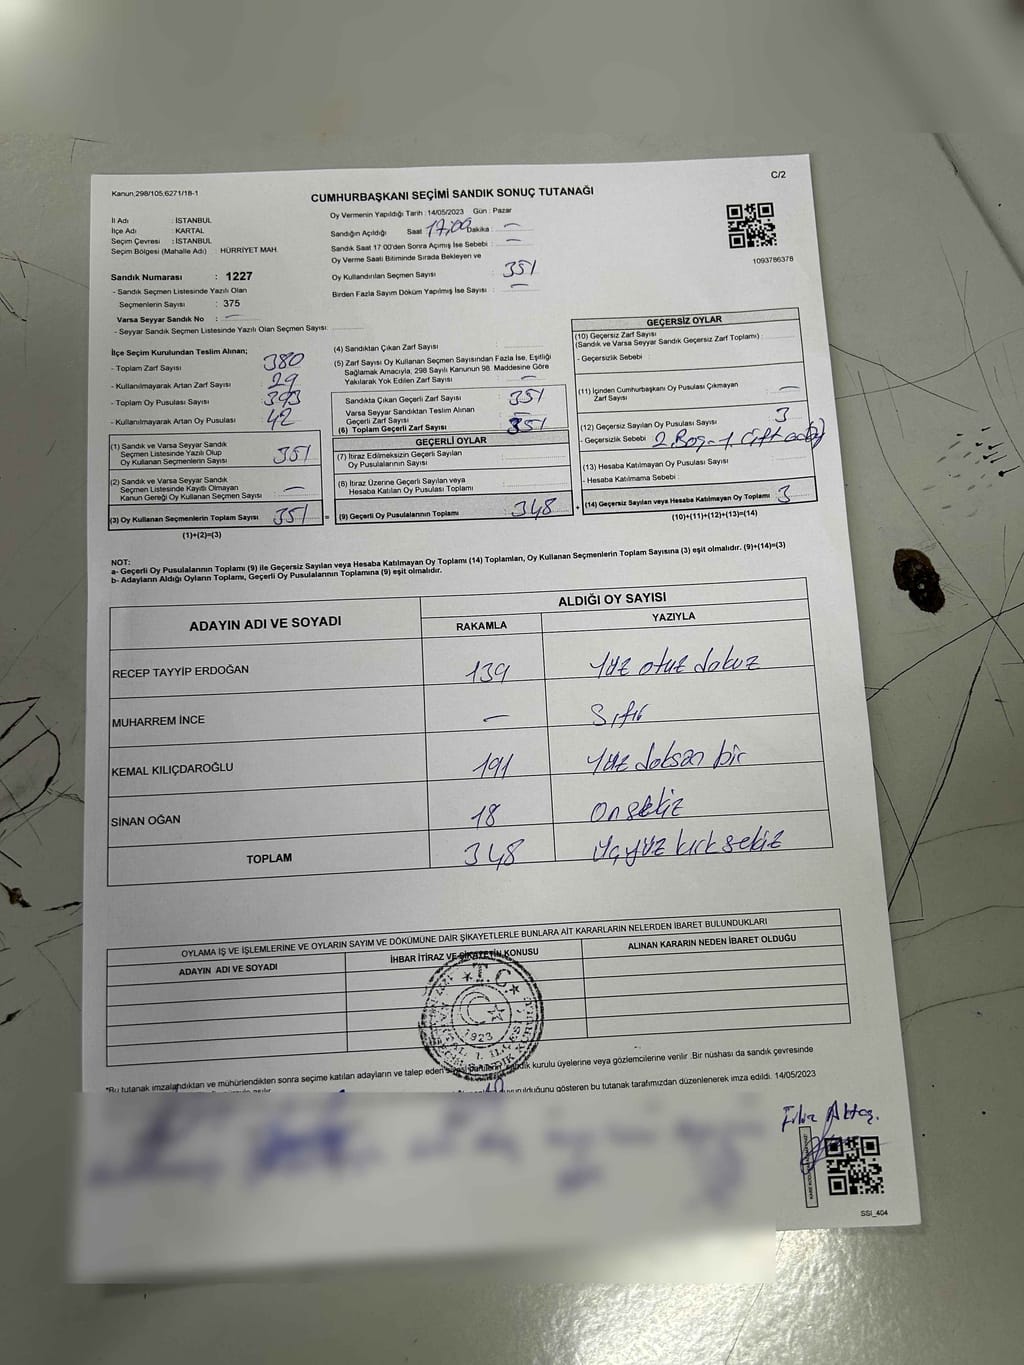 C/2
Kanun,298/105;6271/18-1
CUMHURBAŞKANI SEÇİMİ SANDIK SONUÇ TUTANAĞI
İl Adı : İSTANBUL
İlçe Adı : KARTAL
Seçim Çevresi : İSTANBUL
Seçim Bölgesi (Mahalle Adı) : HÜRRİYET MAH.
Sandık Numarası : 1227
- Sandık Seçmen Listesinde Yazılı Olan
Seçmenlerin Sayısı : 375
Varsa Seyyar Sandık No : —
- Seyyar Sandık Seçmen Listesinde Yazılı Olan Seçmen Sayısı
Oy Vermenin Yapıldığı Tarih : 14/05/2023 Gün : Pazar
Sandığın Açıldığı Saat 17,00 Dakika : —
Sandık Saat 17 00'den Sonra Açımış İse Sebebi : —
Oy Verme Saati Bitiminde Sırada Bekleyen ve
Oy Kullandırılan Seçmen Sayısı : 351
Birden Fazla Sayım Döküm Yapılmış İse Sayısı : —
1093786378
İlçe Seçim Kurulundan Teslim Alınan;
- Toplam Zarf Sayısı 380
- Kullanılmayarak Artan Zarf Sayısı 29
- Toplam Oy Pusulası Sayısı 393
- Kullanılmayarak Artan Oy Pusulası 42
(1) Sandık ve Varsa Seyyar Sandık
Seçmen Listesinde Yazılı Olup
Oy Kullanan Seçmenlerin Sayısı 351
(2) Sandık ve Varsa Seyyar Sandık
Seçmen Listesinde Kayıtlı Olmayan
Kanun Gereği Oy Kullanan Seçmen Sayısı —
(3) Oy Kullanan Seçmenlerin Toplam Sayısı 351
(1)+(2)=(3)
(4) Sandıktan Çıkan Zarf Sayısı
(5) Zarf Sayısı Oy Kullanan Seçmen Sayısından Fazla İse, Eşitliği
Sağlamak Amacıyla, 298 Sayılı Kanunun 98. Maddesine Göre
Yakılarak Yok Edilen Zarf Sayısı : —
Sandıkta Çıkan Geçerli Zarf Sayısı 351
Varsa Seyyar Sandıktan Teslim Alınan
Geçerli Zarf Sayısı
(6) Toplam Geçerli Zarf Sayısı 351
GEÇERLİ OYLAR
(7) İtiraz Edilmeksizin Geçerli Sayılan
Oy Pusulalarının Sayısı
(8) İtiraz Üzerine Geçerli Sayılan veya
Hesaba Katılan Oy Pusulası Toplamı
= (9) Geçerli Oy Pusulalarının Toplamı 348 +
GEÇERSİZ OYLAR
(10) Geçersiz Zarf Sayısı
(Sandık ve Varsa Seyyar Sandık Geçersiz Zarf Toplamı) :
- Geçersizlik Sebebi :
(11) İçinden Cumhurbaşkanı Oy Pusulası Çıkmayan
Zarf Sayısı —
(12) Geçersiz Sayılan Oy Pusulası Sayısı 3
- Geçersizlik Sebebi 2 Boş-1
(13) Hesaba Katılmayan Oy Pusulası Sayısı
- Hesaba Katılmama Sebebi :
(14) Geçersiz Sayılan veya Hesaba Katılmayan Oy Toplamı 3
(10)+(11)+(12)+(13)=(14)
NOT:
a- Geçerli Oy Pusulalarının Toplamı (9) ile Geçersiz Sayılan veya Hesaba Katılmayan Oy Toplamı (14) Toplamları, Oy Kullanan Seçmenlerin Toplam Sayısına (3) eşit olmalıdır. (9)+(14)=(3)
b- Adayların Aldığı Oyların Toplamı, Geçerli Oy Pusulalarının Toplamına (9) eşit olmalıdır.
ADAYIN ADI VE SOYADI
ALDIĞI OY SAYISI
RAKAMLA YAZIYLA
RECEP TAYYİP ERDOĞAN 139 Yüz otuz dokuz
MUHARREM İNCE — Sıfır
KEMAL KILIÇDAROĞLU 191 Yüz doksan bir
SİNAN OĞAN 18 On sekiz
TOPLAM 348 Üçyüz kırk sekiz
OYLAMA İŞ VE İŞLEMLERİNE VE OYLARIN SAYIM VE DÖKÜMÜNE DAİR ŞİKAYETLERLE BUNLARA AİT KARARLARIN NELERDEN İBARET BULUNDUKLARI
ADAYIN ADI VE SOYADI İHBAR İTİRAZ VE ŞİKAYETİN KONUSU ALINAN KARARIN NEDEN İBARET OLDUĞU
T.C.
1923
*Bu tutanak imzalandıktan ve mühürlendikten sonra seçime katılan adayların ve talep eden kurulu üyelerine veya gözlemcilerine verilir .Bir nüshası da sandık çevresinde
gösteren bu tutanak tarafımızdan düzenlenerek imza edildi. 14/05/2023
SSI_404